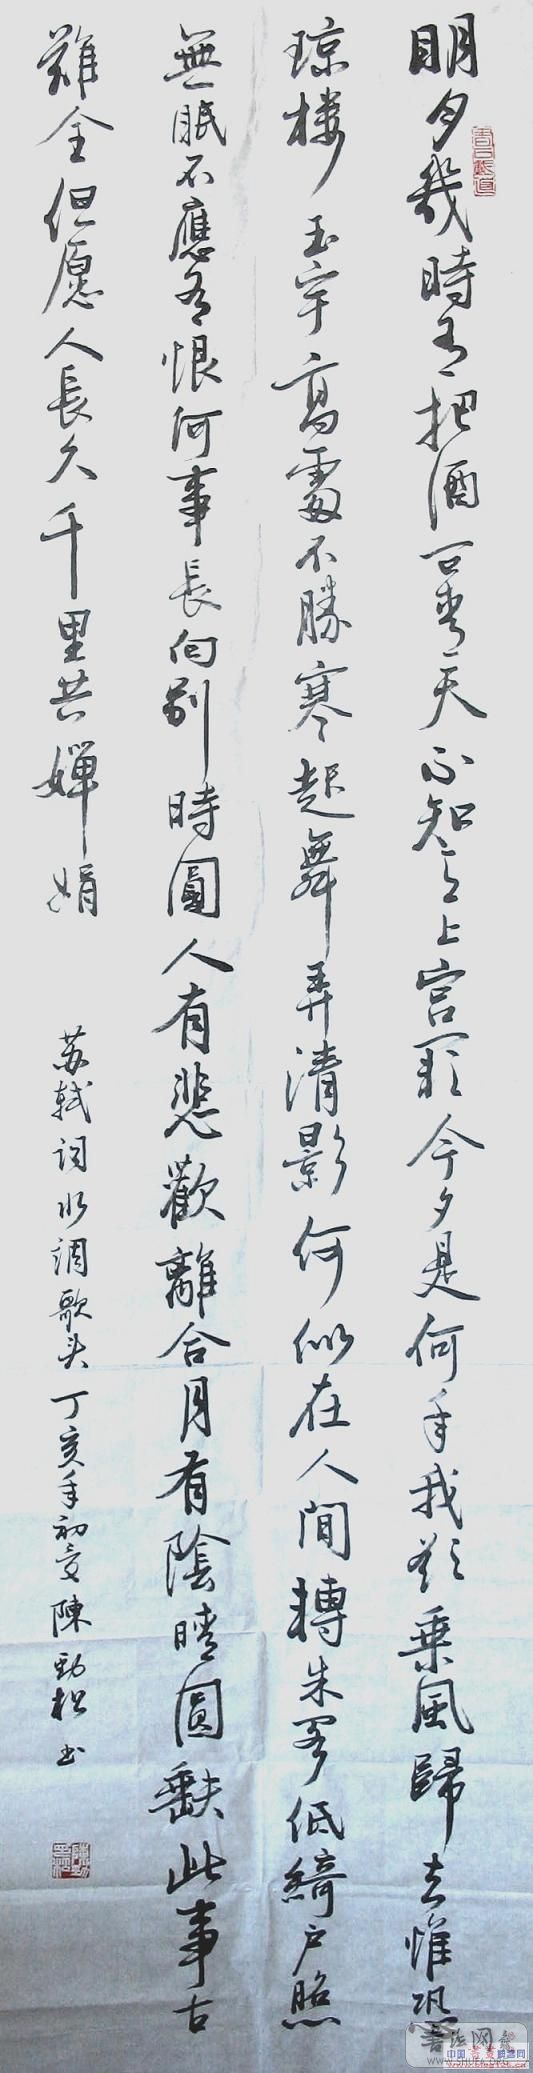 明月幾時有把酒问青天不知天上宫阙今夕是何年我欲乘風歸去惟恐
琼楼玉宇高處不勝寒起舞弄清影何似在人間轉朱阁低綺户照
無眠不應有恨何事長向别時圓人有悲歡離合月有陰晴圓缺此事古
難全但愿人長久千里共嬋娟
苏轼词水調歌头丁亥年初夏陳勁松书